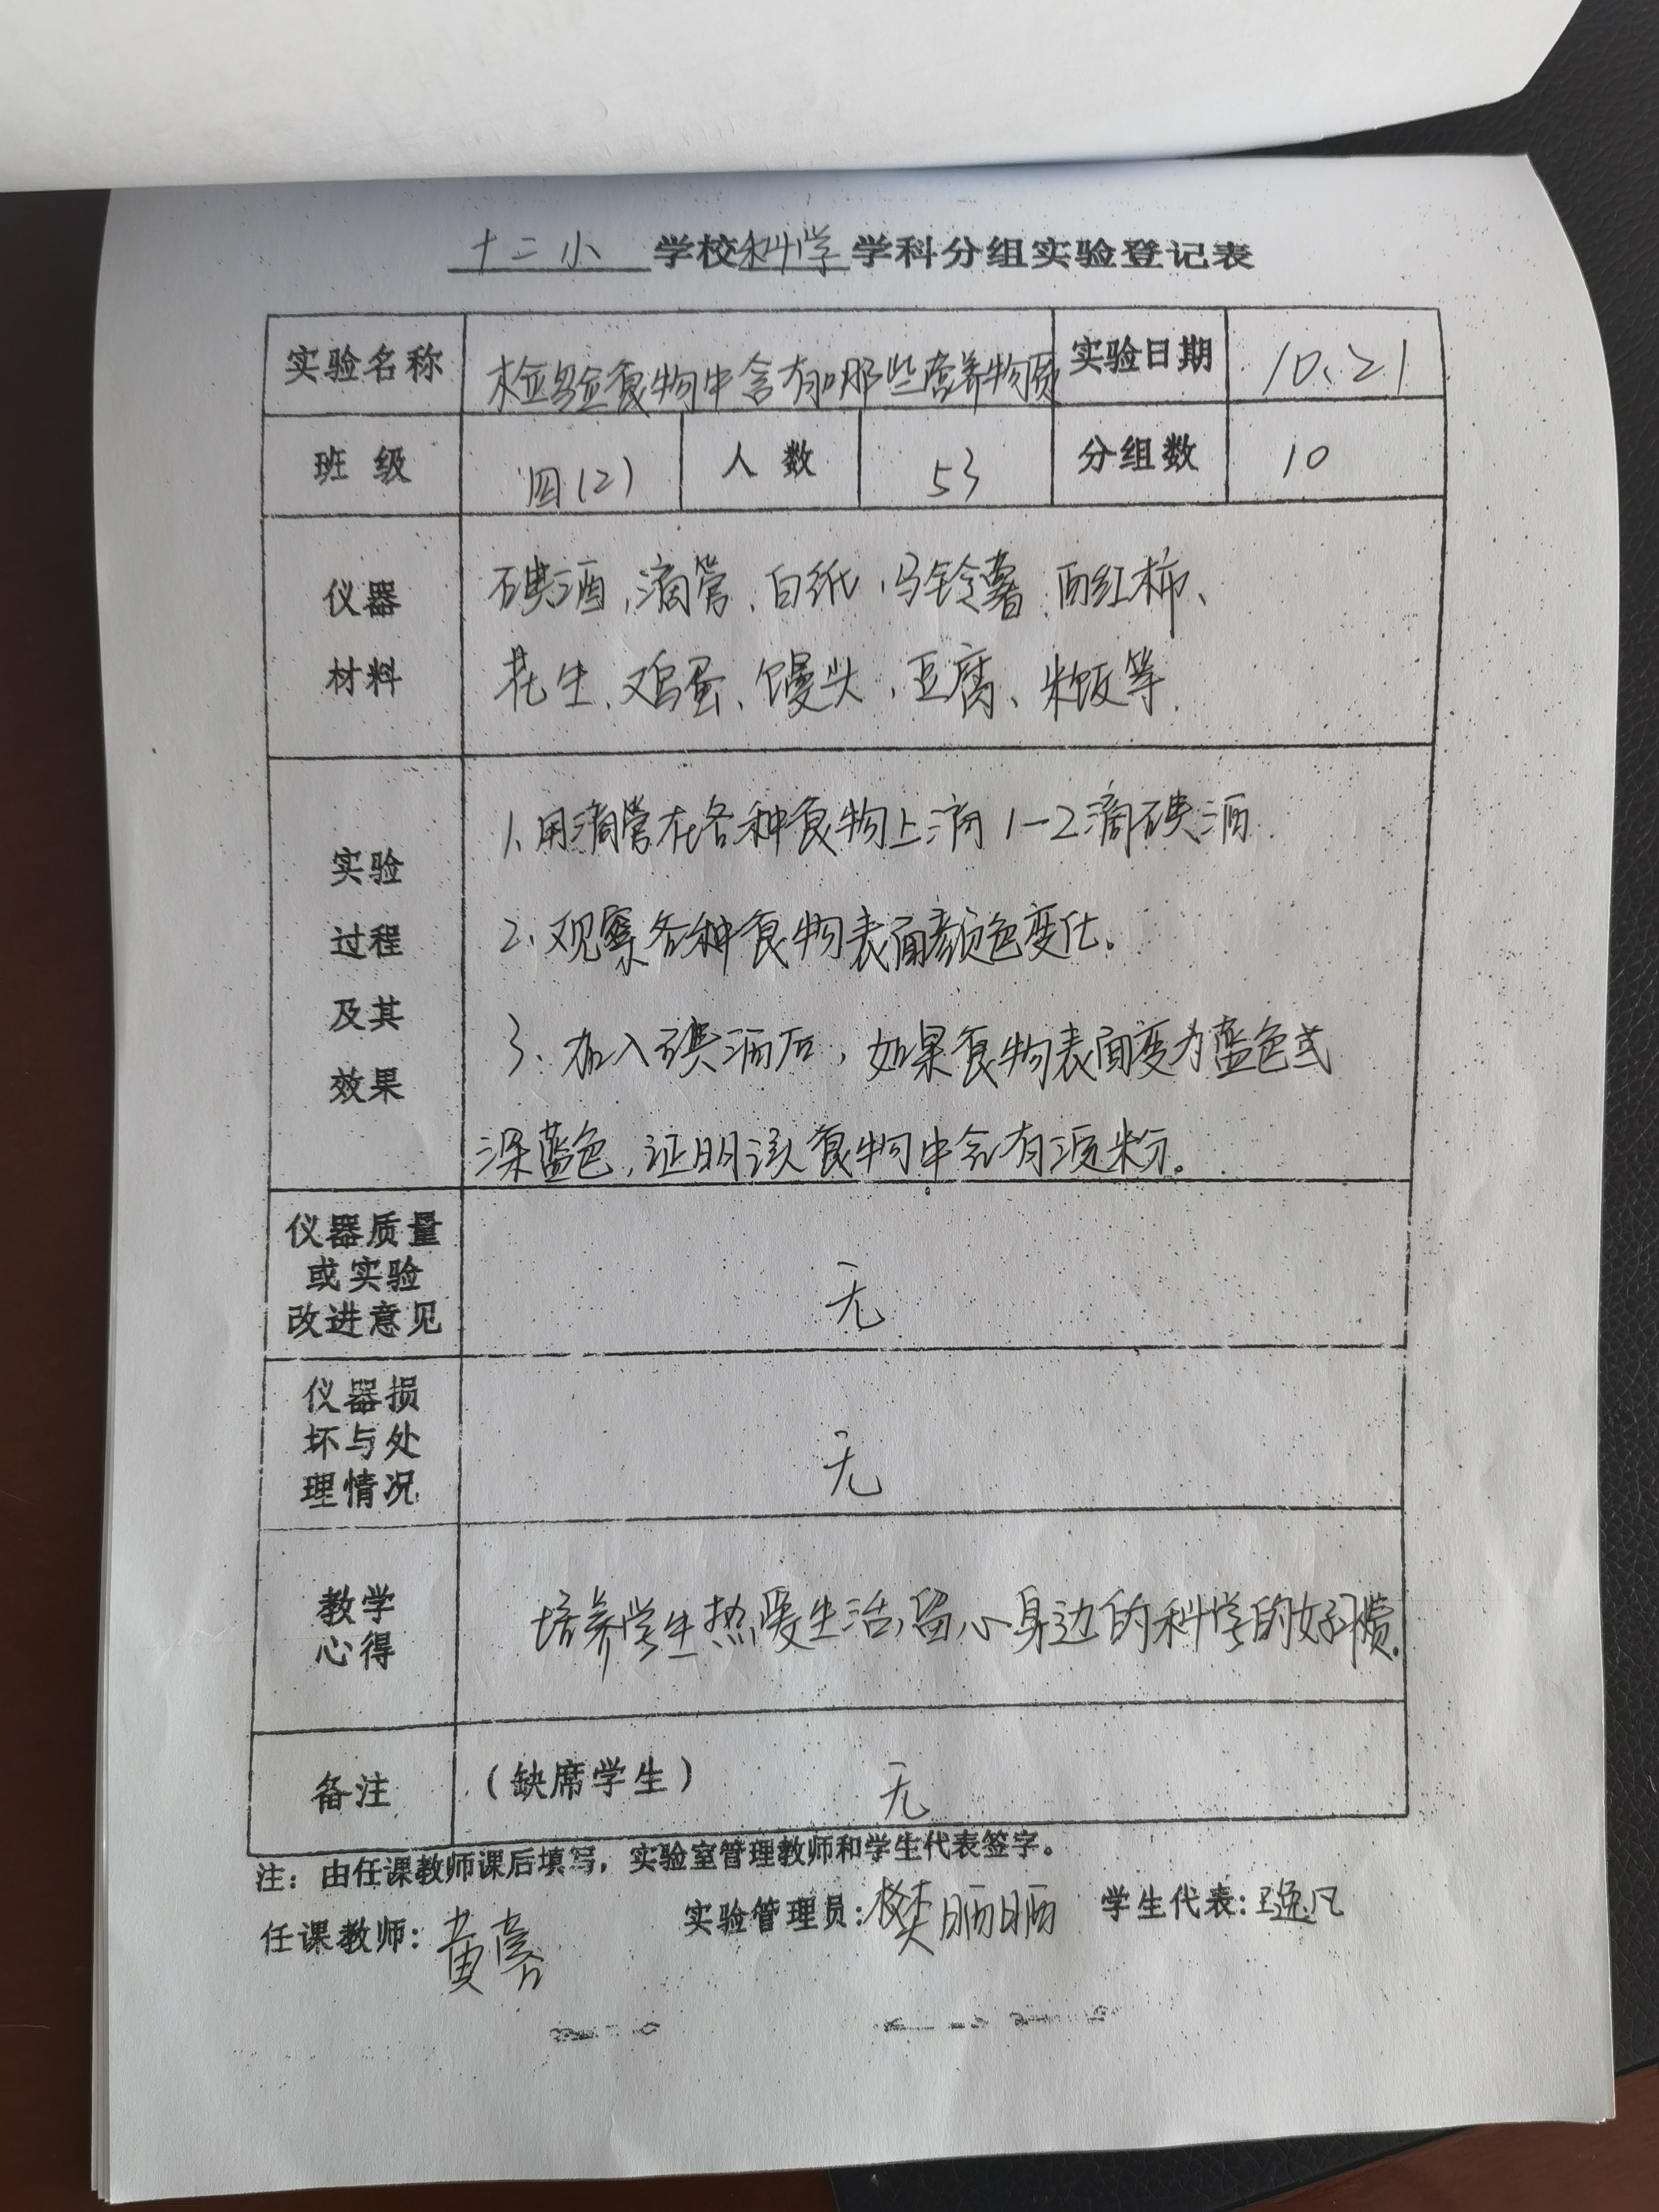 十二小 学校科学学科分组实验登记表
实验名称 检验食物中含有哪些营养物质 实验日期 10、21
班级 四(2) 人数 53 分组数 10
仪器
材料
碘酒、滴管、白纸、马铃薯、西红柿、
花生、鸡蛋、馒头、豆腐、米饭等.
实验
过程
及其
效果
1、用滴管在各种食物上滴1-2滴碘酒.
2、观察各种食物表面颜色变化。
3、加入碘酒后，如果食物表面变为蓝色或
深蓝色，证明该食物中含有淀粉。
仪器质量
或实验
改进意见
无
仪器损
坏与处
理情况
无
教学
心得
培养学生热爱生活，留心身边的科学的好习惯.
备注 (缺席学生) 无
注：由任课教师课后填写，实验室管理教师和学生代表签字。
任课教师：黄 实验管理员：樊 学生代表：逸凡